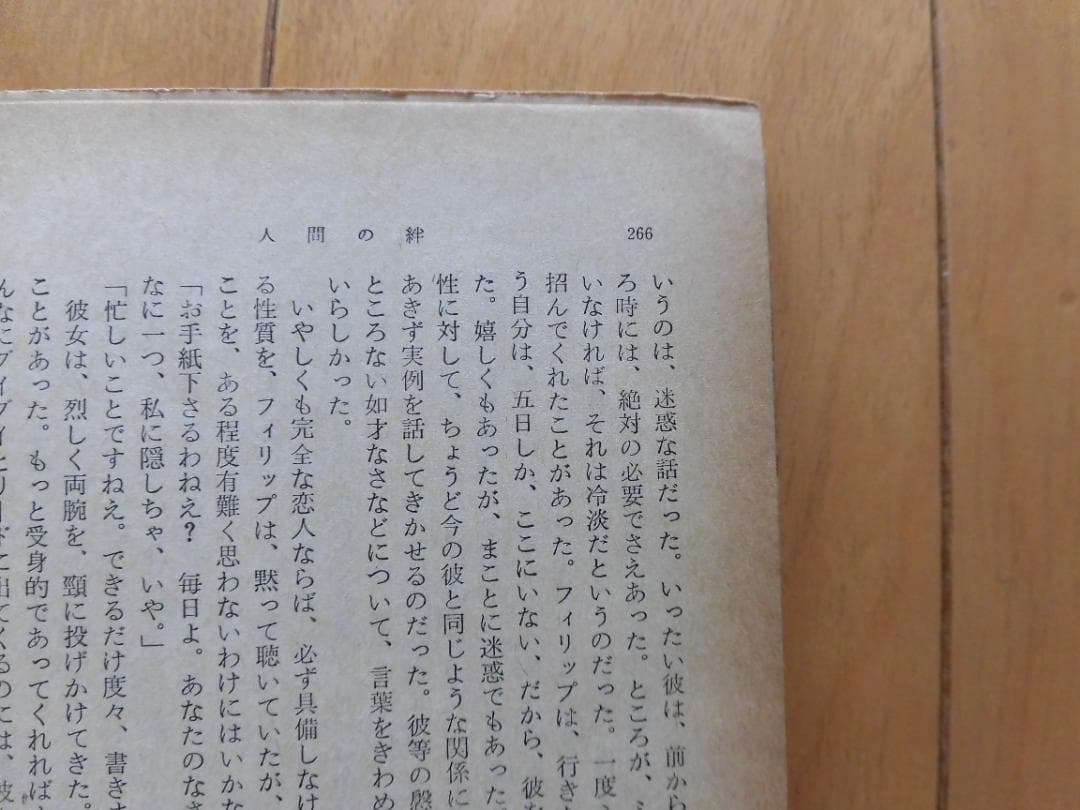 266
人間の絆
いうのは、迷惑な話だった。いったい彼は、前から
ろ時には、絶対の必要でさえあった。ところが、
いなければ、それは冷淡だというのだった。一度、
招んでくれたことがあった。フィリップは、行き
う自分は、五日しか、ここにいない、だから、彼
た。嬉しくもあったが、まことに迷惑でもあった
性に対して、ちょうど今の彼と同じような関係に
あきず実例を話してきかせるのだった。彼等の慇
ところない如才なさなどについて、言葉をきわめ
いらしかった。
いやしくも完全な恋人ならば、必ず具備しなけ
る性質を、フィリップは、黙って聴いていたが、
ことを、ある程度有難く思わないわけにはいかな
「お手紙下さるわねえ？　毎日よ。あなたのなさ
なに一つ、私に隠しちゃ、いや。」
「忙しいことですねえ。できるだけ度々、書きま
彼女は、烈しく両腕を、頸に投げかけてきた。
ことがあった。もっと受身的であってくれれば
んなにグイグイとリードに出てくるのには、彼